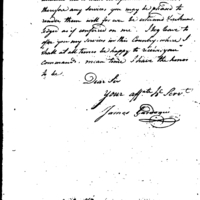 therefore any services you may be pleased to
render them will for me be esteemed
as if conferred on me. I beg leave to
offer you my services in this Country where I
shall at all times be happy to receive your
commands mean time I have the honor
to be
Dear Sir
Your affte Hle Servt
James Gardoqui